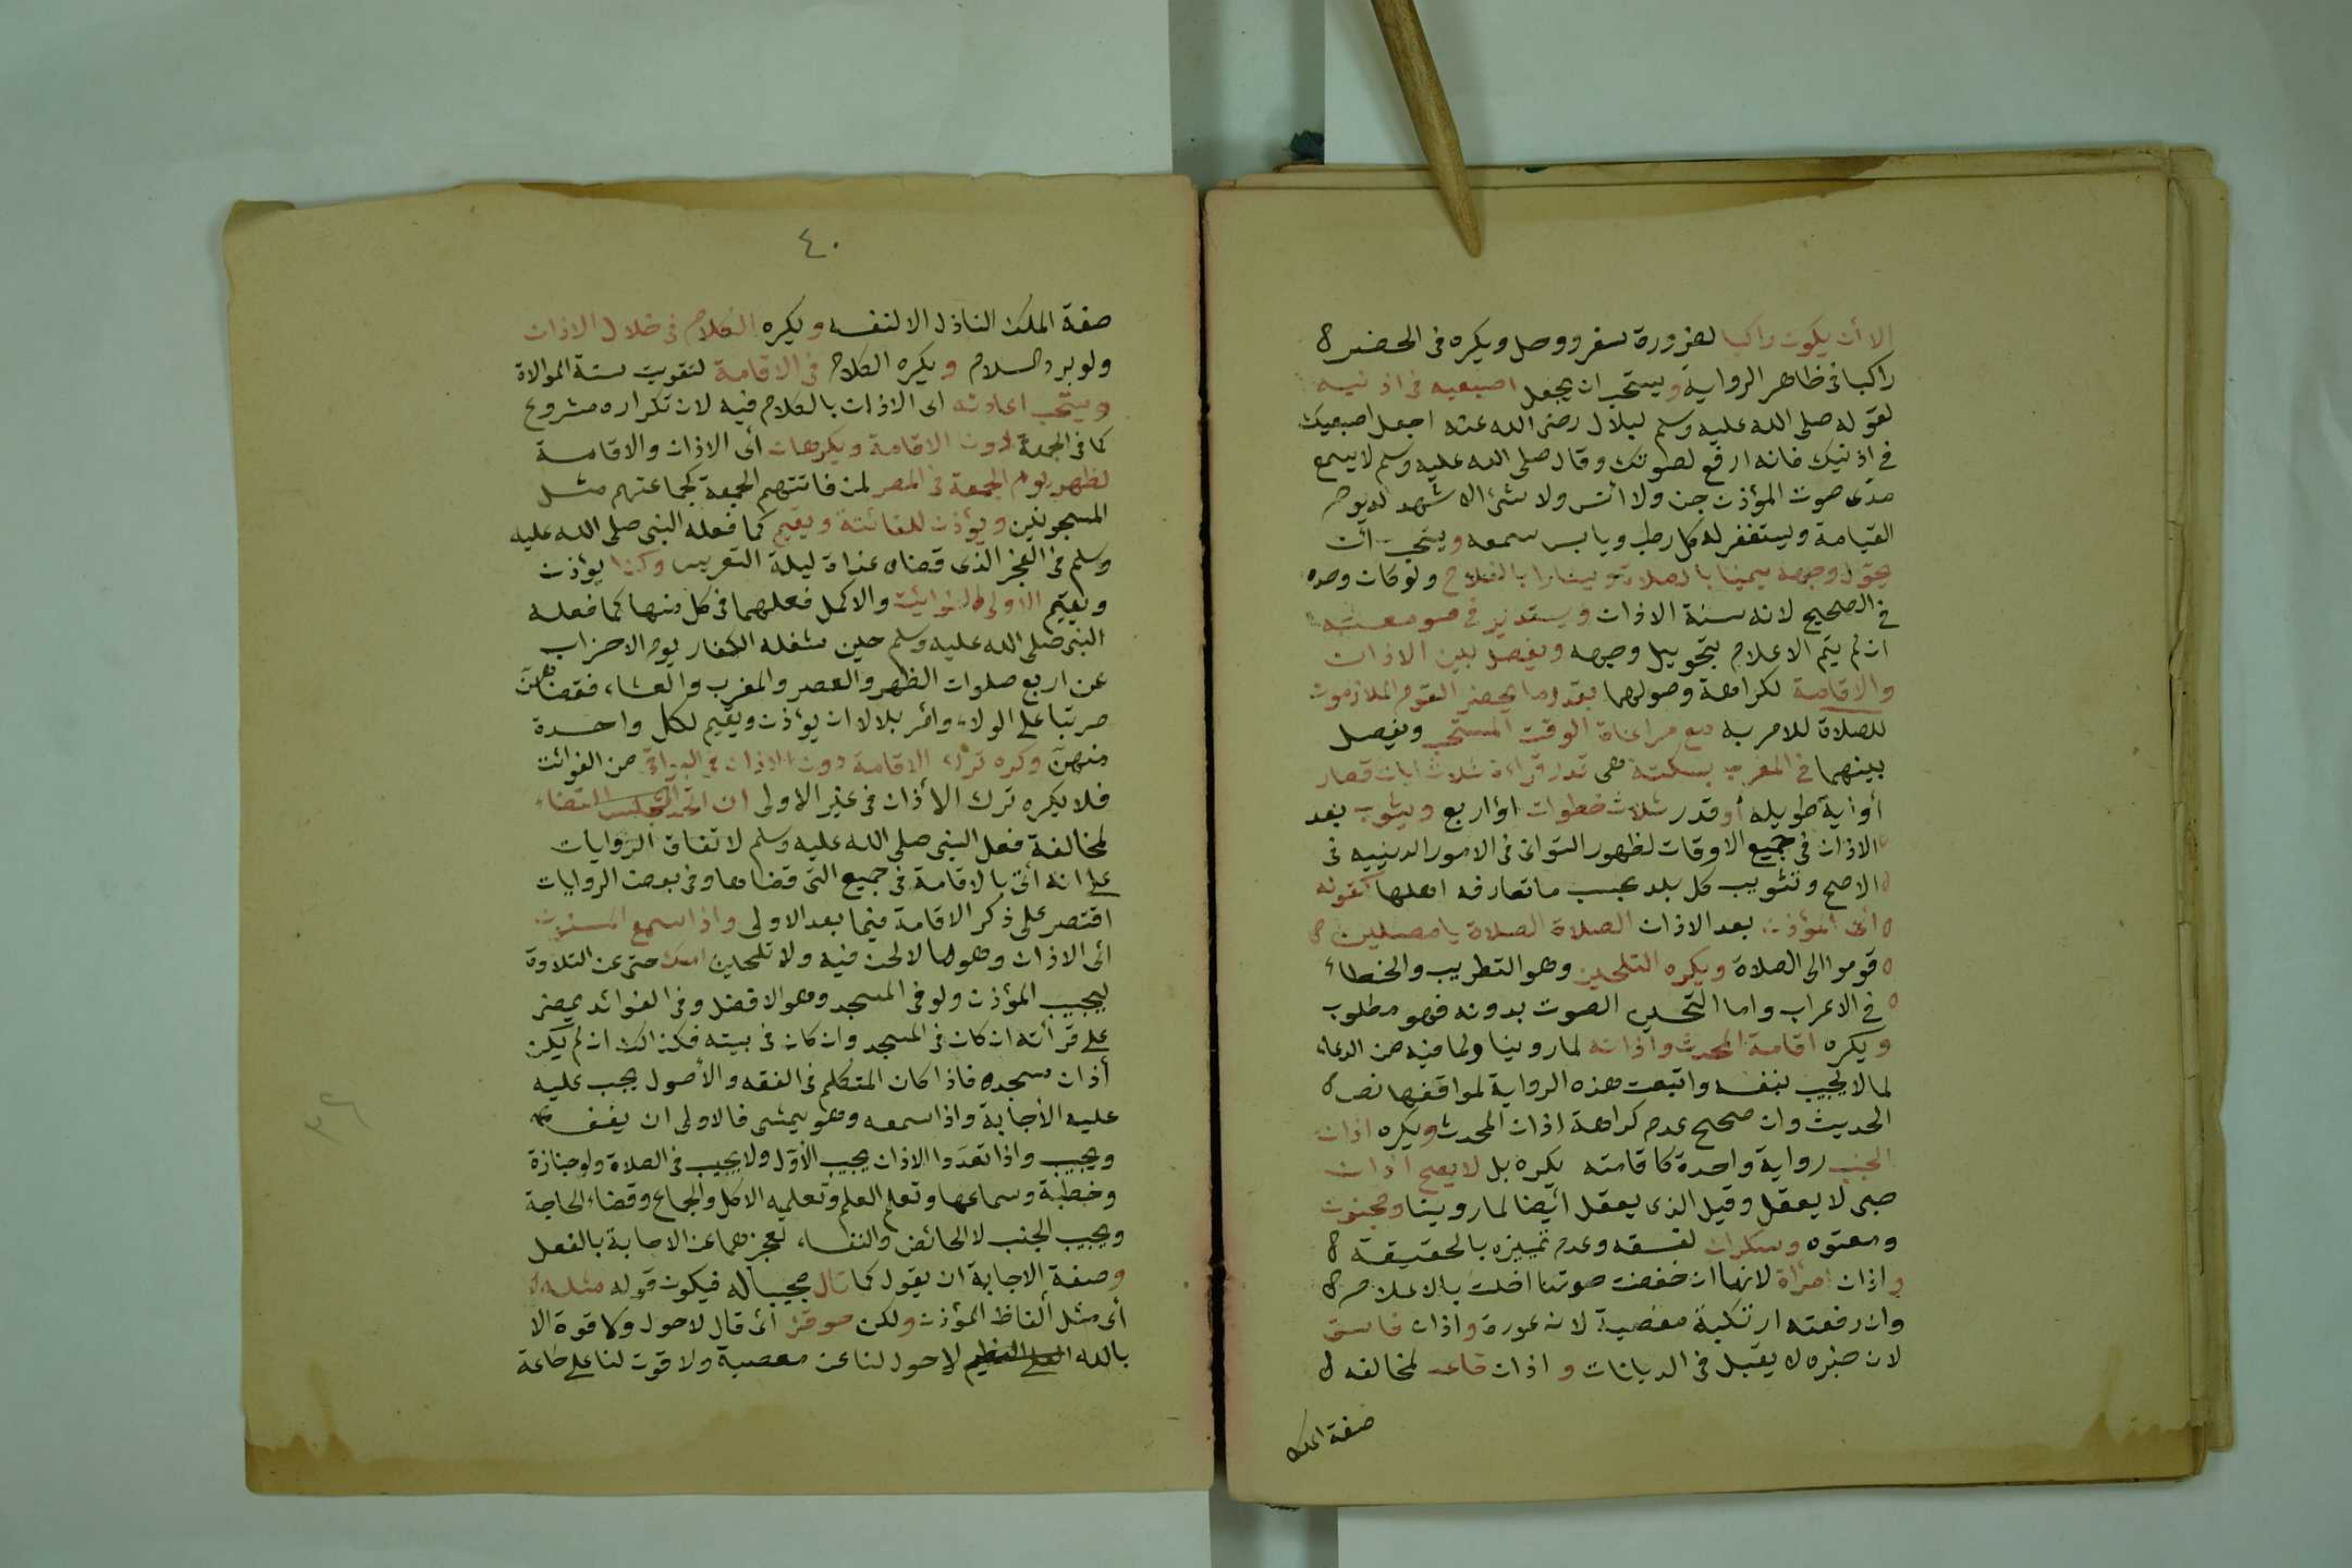 الا أن يكون راكبا لضرورة سفر ووحل ويكره في الحضر
راكبا في ظاهر الرواية ويستحب ان يجعل اصبعيه في اذنيه
لقوله صلى الله عليه وسلم لبلال رضى الله عنه اجعل اصبعيك
في اذنيك فانه ارفع لصوتك وقال صلى الله عليه وسلم لا يسمع
مدى صوت المؤذن جن ولا انس ولا شئ الا شهد له يوم
القيامة ويستغفر له كل رطب ويابس سمعه ويستحب أن
يحول وجهه يمينا بالصلاة ويسارا بالفلاح ولو كان وحده
في الصحيح لانه سنة الاذان ويستدير في صومعته
ان لم يتم الاعلام بتحويل وجهه ويفصل بين الاذان
والاقامة لكراهة وصولهما بقدر ما يحضر القوم الملازمون
للصلاة للامر به مع مراعاة الوقت المستحب ويفصل
بينهما في المغرب بسكتة هى قدر قراءة ثلاث ايات قصار
أو اية طويله أو قدر ثلاث خطوات او اربع ويثوب بعد
الاذان في جميع الاوقات لظهور التوانى في الامور الدينيه في
الاصح وتثويب كل بلد بحسب ما تعارفه اهلها كقوله
أى المؤذن بعد الاذان الصلاة الصلاة يا مصلين
قوموا الى الصلاة ويكره التلحين وهو التطريب والخطاء
في الاعراب واما التحسين الصوت بدونه فهو مطلوب
ويكره اقامة المحدث واذانه لما روينا ولما فيه من الدعاء
لما لا يجيب بنفسه واتبعت هذه الرواية لموافقها نص
الحديث وان صحح عدم كراهة اذان المحدث ويكره اذان
الجنب رواية واحدة كاقامته يكره بل لا يصح اذان
صبى لا يعقل وقيل الذى يعقل أيضا لما روينا ومجنون
ومعتوه وسكران لفسقه وعدم تمييزه بالحقيقة
واذان امرأة لانها ان خفضت صوتها اخلت بالاعلام
وان رفعته ارتكبة معصية لانه عورة واذان فاسق
لان خبره لا يقبل في الديانات واذان قاعد لمخالفه
صفة الملك
٤٠
صفة الملك النازل الا لنفسه ويكره الكلام في خلال الاذان
ولو برد السلام ويكره الكلام في الاقامة لتفويت سنة الموالاة
ويستحب اعادته اى الاذان بالكلام فيه لان تكراره مشروع
كما في الجمعة دون الاقامة ويكرهان أى الاذان والاقامة
لظهر يوم الجمعة في المصر لمن فاتتهم الجمعة كجماعتهم مثل
المسجونين ويؤذن للفائتة ويقيم كما فعله النبى صلى الله عليه
وسلم في الفجر الذى قضاه غداة ليلة التعريس وكذا يؤذن
ويقيم لاولى الفوائت والاكمل فعلهما في كل منها كما فعله
النبى صلى الله عليه وسلم حين شغله الكفار يوم الاحزاب
عن اربع صلوات الظهر والعصر والمغرب والعشاء فقضاهن
مرتبا على الولاء وامر بلالا ان يؤذن ويقيم لكل واحدة
منهن وكره ترك الاقامة دون الاذان في البواقى من الفوائت
فلا يكره ترك الأذان في غير الاولى ان اتحد مجلس القضاء
لمخالفة فعل النبى صلى الله عليه وسلم لاتفاق الروايات
على انه اتى بالاقامة في جميع التى قضاها وفي بعض الروايات
اقتصر على ذكر الاقامة فيما بعد الاولى واذا سمع المسنون
أى الاذان وهو ما لا لحن فيه ولا تلحين امسك حتى عن التلاوة
ليجيب المؤذن ولو في المسجد وهو الافضل وفي الفوائد يمضى
على قرأته ان كان في المسجد وان كان في بيته فكذلك ان لم يكن
أذان مسجده فاذا كان المتكلم في الفقه والأصول يجب عليه
عليه الأجابة واذا سمعه وهو يمشى فالاولى ان يقف
ويجيب واذا تعدد الاذان يجيب الأول ولا يجيب في الصلاة ولو جنازة
وخطبة وسماعها وتعلم العلم وتعليمه الاكل والجماع وقضاء الحاجة
ويجيب الجنب لا الحائض والنفساء لعجزهما عن الاجابة بالفعل
وصفة الاجابة ان يقول كما قال مجيبا له فيكون قوله مثله
أى مثل ألفاظ المؤذن ولكن حوقل أى قال لا حول ولا قوة الا
بالله العلى العظيم لا حول لنا عن معصية ولا قوت لنا على طاعة